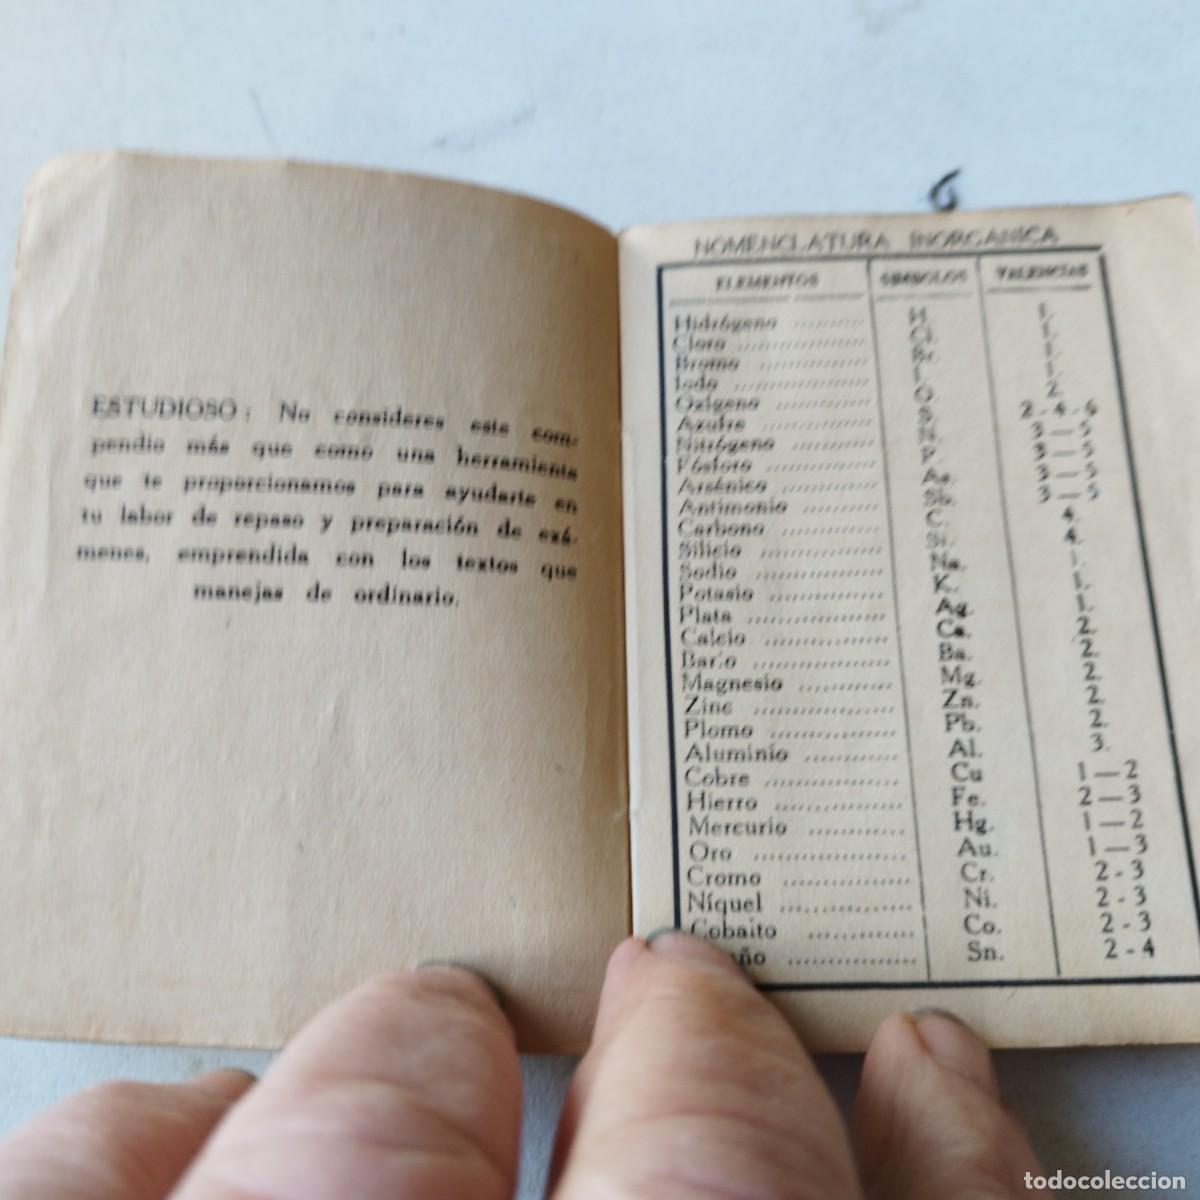 ESTUDIOSO: No consideres este com-
pendio más que como una herramienta
que te proporcionamos para ayudarte en
tu labor de repaso y preparación de exá-
menes, emprendida con los textos que
manejas de ordinario.
NOMENCLATURA INORGANICA
ELEMENTOS SIMBOLOS VALENCIAS
Hidrógeno .......... H. 1.
Cloro .......... Cl. 1.
Bromo .......... Br. 1.
Iodo .......... I. 1.
Oxígeno .......... O. 2.
Azufre .......... S. 2 - 4 - 6
Nitrógeno .......... N. 3 — 5
Fósforo .......... P. 3 — 5
Arsénico .......... As. 3 — 5
Antimonio .......... Sb. 3 — 5
Carbono .......... C. 4.
Silicio .......... Si. 4.
Sodio .......... Na. 1.
Potasio .......... K. 1.
Plata .......... Ag. 1.
Calcio .......... Ca. 2.
Bario .......... Ba. 2.
Magnesio .......... Mg. 2.
Zinc .......... Zn. 2.
Plomo .......... Pb. 2.
Aluminio .......... Al. 3.
Cobre .......... Cu 1 — 2
Hierro .......... Fe. 2 — 3
Mercurio .......... Hg. 1 — 2
Oro .......... Au. 1 — 3
Cromo .......... Cr. 2 - 3
Níquel .......... Ni. 2 - 3
Cobalto .......... Co. 2 - 3
año .......... Sn. 2 - 4
todocoleccion